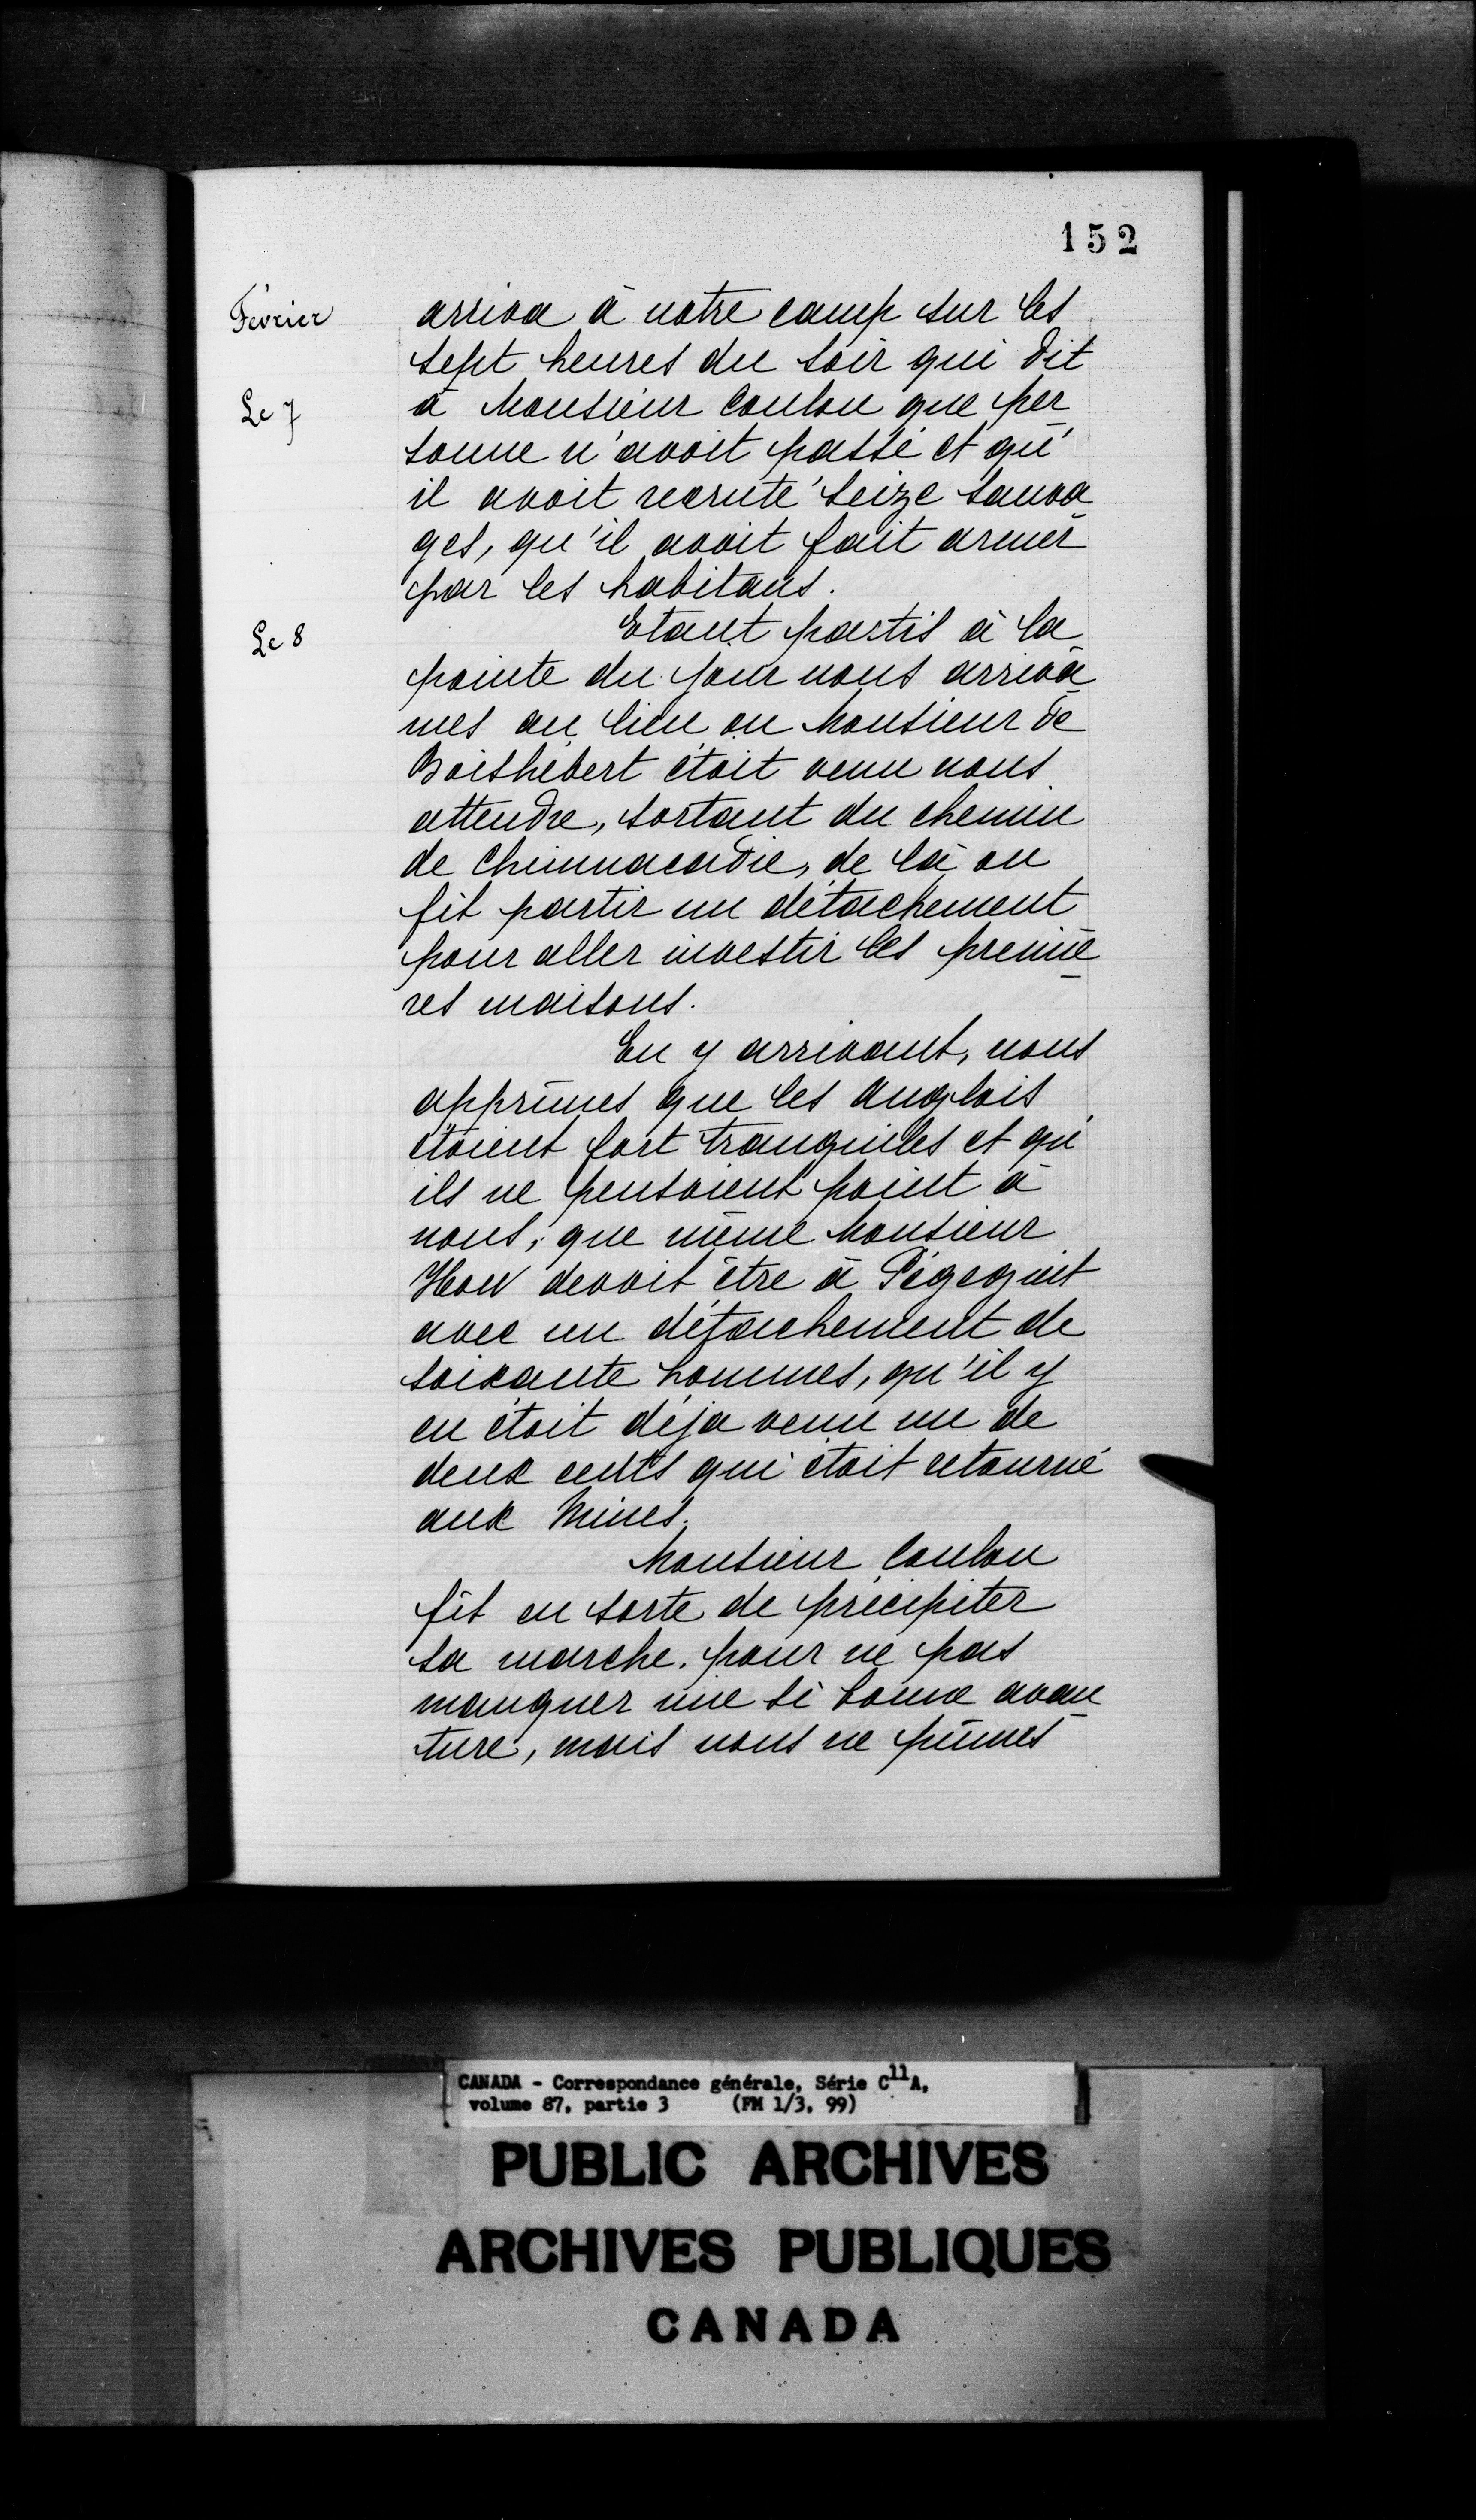 152
Février arriva à notre camp sur les
sept heures du soir qui dit
Le 7 à Monsieur Coulon que per
sonne n'avoit passé et qu'
il avoit recruté seize sauva
ges, qu'il avoit fait armer
par les habitans.
Le 8 Etant partis à la
pointe du jour nous arrivâ
mes au lieu ou Monsieur de
Boishébert étoit venu nous
attendre, sortant du chemin
de Chimnacadie, de là on
fit partir un détachement
pour aller investir les premiè
res maisons.
En y arrivant, nous
apprîmes que les anglois
étoient fort tranquiles et qu'
ils ne pensoient point à
nous, que même Monsieur
How devoit être à Pégeguit
avec un détachement de
soixante hommes, qu'il y
en étoit déja venu un de
deux cents qui étoit retourné
aux Mines.
Monsieur Coulon
fit en sorte de précipiter
sa marche. pour ne pas
manquer une si bonne avan
ture, mais nous ne pûmes
CANADA - Correspondance générale, Série C11A,
volume 87, partie 3 (FM 1/3, 99)
PUBLIC ARCHIVES
ARCHIVES PUBLIQUES
CANADA